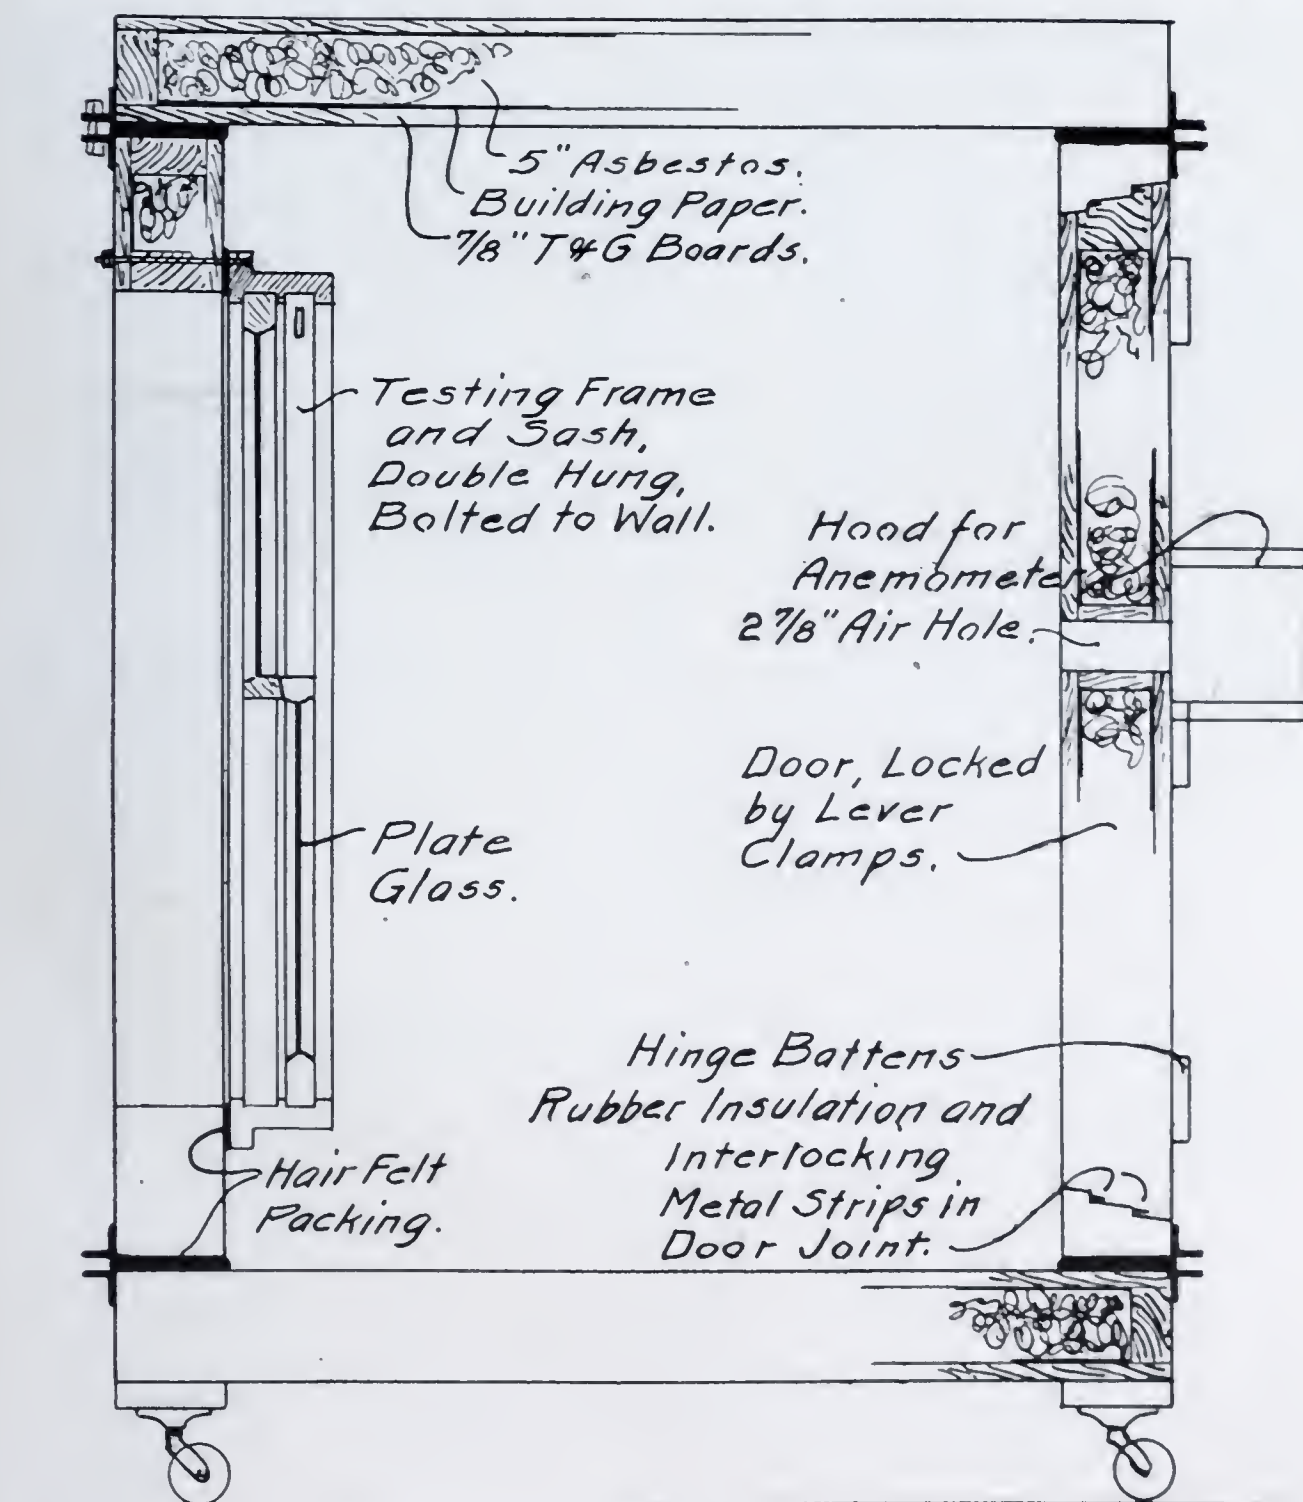 5" Asbestos.
Building Paper.
7/8" T&G Boards.
Testing Frame
and Sash,
Double Hung,
Bolted to Wall.
Hood for
Anemometer
2 7/8" Air Hole.
Door, Locked
by Lever
Clamps.
Plate
Glass.
Hinge Battens
Rubber Insulation and
Interlocking
Metal Strips in
Door Joint.
Hair Felt
Packing.